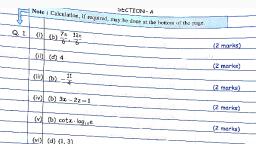 SECTION-A
Note : Calculation, if required, may be done at the bottom of the page.
Q. 1 (i) (b) 7π/6, 11π/6
(2 marks)
(ii) (d) 4
(2 marks)
(iii) (b) -11/4
(2 marks)
(iv) (b) 3x - 2z = 1
(2 marks)
(v) (b) cotx · log₁₀e
(2 marks)
(vi) (d) {1, 3}